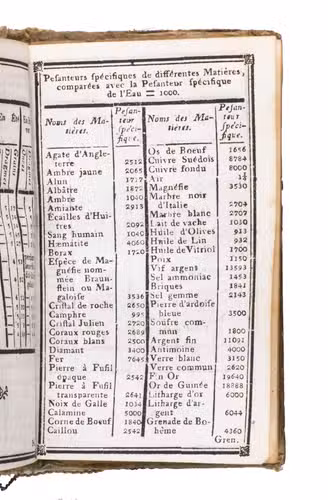 Pesanteurs spécifiques de différentes Matières,
comparées avec la Pesanteur spécifique
de l'Eau = 1000.
Noms des Matières.
Pesanteur spécifique.
Agate d'Angleterre 2512
Ambre jaune 2065
Alun 1717
Albâtre 1872
Ambre 1040
Amiante 2913
Écailles d'Huitres 2092
Sang humain 1040
Hœmâtite 4060
Borax 1720
Espèce de Magnéfie nommée Braunstein ou Magaloise 3536
Cristal de roche 2650
Camphre 995
Cristal Julien 2720
Coraux rouges 2689
Coraux blans 2500
Diamant 3400
Fer 7645
Pierre à Fusil opaque 2542
Pierre à Fusil transparente 2641
Noix de Galle 1034
Calamine 5000
Corne de Boeuf 1840
Caillou 2542
Noms des Matières.
Pesanteur spécifique.
Os de Boeuf 1656
Cuivre Suédois 8784
Cuivre fondu 8000
Air
Magnéfie 3530
Marbre noir d'Italie 2704
Marbre blanc 2707
Lait de vache 1030
Huile d'Olives 913
Huile de Lin 932
Huile de Vitriol 1700
Poix 1150
Vif argent 13593
Sel ammoniac 1453
Briques 1841
Sel gemme 2143
Pierre d'ardoise bleue 3500
Soufre commun 1800
Argent fin 11091
Antimoine 4000
Verre blanc 3150
Verre commun 2620
Fin Or 19640
Or de Guinée 18888
Litharge d'or 6000
Litharge d'argent 6044
Grenade de Bohême 4360
Gren.